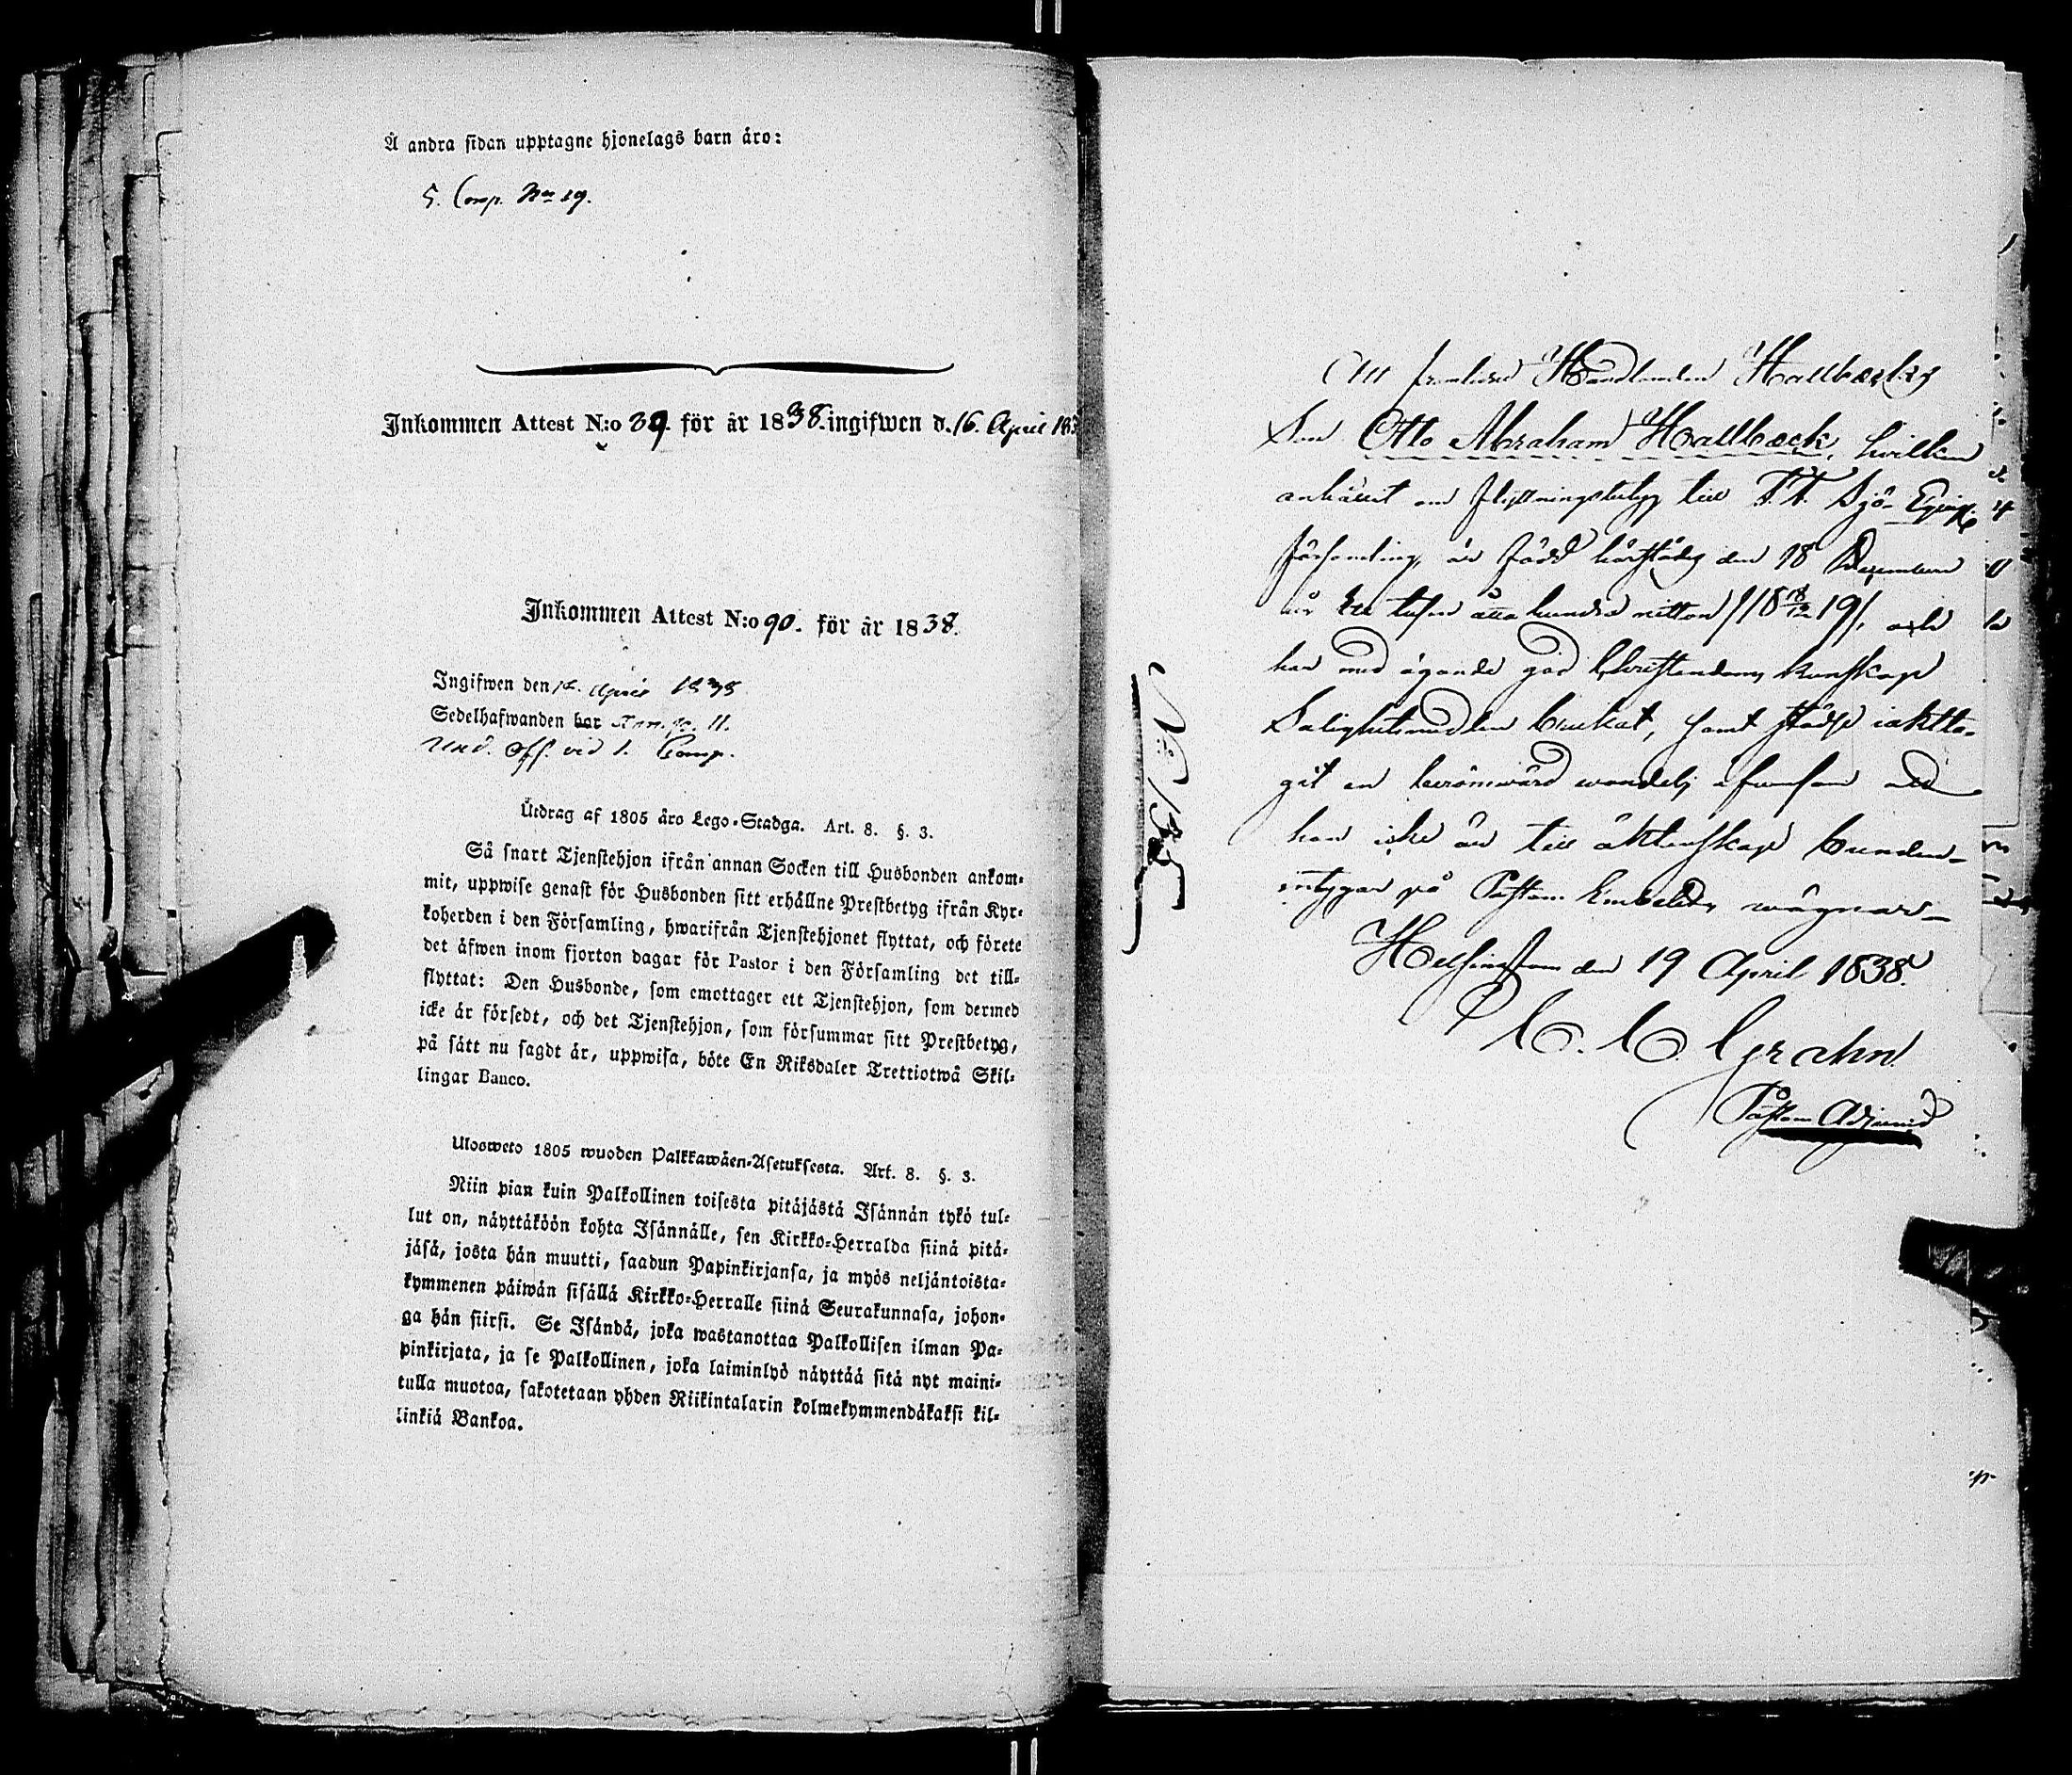 Å andra sidan upptagne hjonelags barn äro:
5. Comp. No 19.
Inkommen Attest N:o 39. för år 1838. ingifwen d. 16. April 183
Inkommen Attest N:o 90. för år 1838.
Ingifwen den April 1838
Sedelhafwanden har 11.
Und. Off. vid 1. Comp.
Utdrag af 1805 års Lego-Stadga. Art. 8. §. 3.
Så snart Tjenstehjon ifrån annan Socken till Husbonden ankom-
mit, uppwise genast för Husbonden sitt erhållne Prestbetyg ifrån Kyr-
koherden i den Församling, hwarifrån Tjenstehjonet flyttat, och förete
det äfwen inom fjorton dagar för Pastor i den Församling det till-
flyttat: Den Husbonde, som emottager ett Tjenstehjon, som dermed
icke är försedt, och det Tjenstehjon, som försummar sitt Prestbetyg,
på sätt nu sagdt är, uppwisa, böte En Riksdaler Trettiotwå Skil-
lingar Banco.
Ulosweto 1805 wuoden Palkkawäen-Asetuksesta. Art. 8. §. 3.
Niin pian kuin Palkollinen toisesta pitäjästä Isännän tykö tul-
lut on, näyttäköön kohta Isännälle, sen Kirkko-Herralda siinä pitä-
jäsä, josta hän muutti, saadun Papinkirjansa, ja myös neljäntoista-
kymmenen päiwän sisällä Kirkko-Herralle siinä Seurakunnasa, johon-
ga hän siirsi. Se Isändä, joka wastanottaa Palkollisen ilman Pa-
pinkirjata, ja se Palkollinen, joka laiminlyö näyttää sitä nyt maini-
tulla muotoa, sakotetaan yhden Riikintalarin kolmekymmendäkaksi kil-
linkiä Bankoa.
Att framlidne Handlanden Hallbecks
Son Otto Abraham Hallbeck, hvilken
anhållit om flyttningsbetyg till F. F. Sjö-Equip.
församling, är född härstädes den 18 December
år Ett tusen åtta hundra nitton /18 18/12 19/, och
han med ägande god Christendoms kunskap
Salighetsmedlen brukat, samt städse iaktta-
git en berömwärd wandel; äfwensom att
han icke är till äktenskap bunden-
intygar på Pastors Embetets wägnar-
Helsingfors den 19 April 1838.
C. C. Grahn
Pastors Adjunct